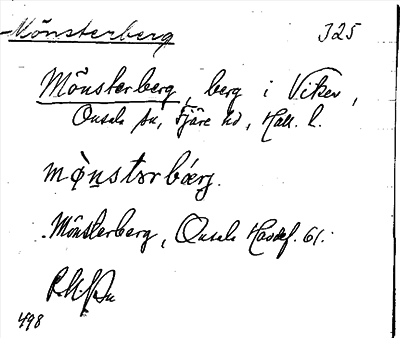 Mönsterberg 325
Mönsterberg, berg i Viken,
Onsala sn, Fjäre hd, Hall. l.
mǫ̀nstərbǽrj.
Mönsterberg, Onsala Havdef. 61.
498